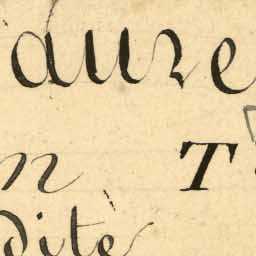 duze
n T
dite